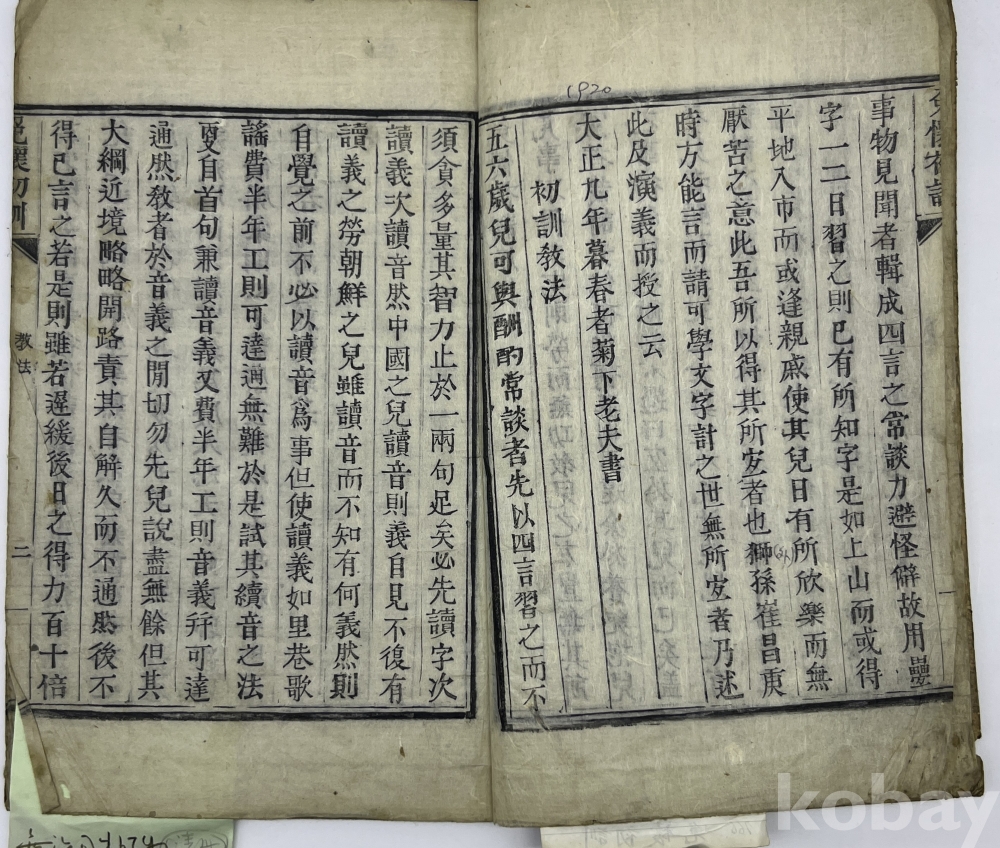 1920
事物見聞者輯成四言之常談力避怪僻故用疊
字一二日習之則已有所知字是如上山而或得
平地入市而或逢親戚使其兒日有所欣樂而無
厭苦之意此吾所以得其所宜者也獅孫崔昌庚
時方能言而請可學文字計之世無所宜者乃述
此及演義而授之云
大正九年暮春者菊下老夫書
初訓敎法
五六歲兒可與酬酌常談者先以四言習之而不
須貪多量其智力止於一兩句足矣必先讀字次
讀義次讀音然中國之兒讀音則義自見不復有
讀義之勞朝鮮之兒雖讀音而不知有何義然則
自覺之前不必以讀音爲事但使讀義如里巷歌
謠費半年工則可達通無難於是試其續音之法
夏自首句兼讀音義又費半年工則音義幷可達
通然敎者於音義之間切勿先兒說盡無餘但其
大綱近境略略開路責其自解久而不通然後不
得已言之若是則雖若遲緩後日之得力百十倍
初訓
敎法
二
kobay